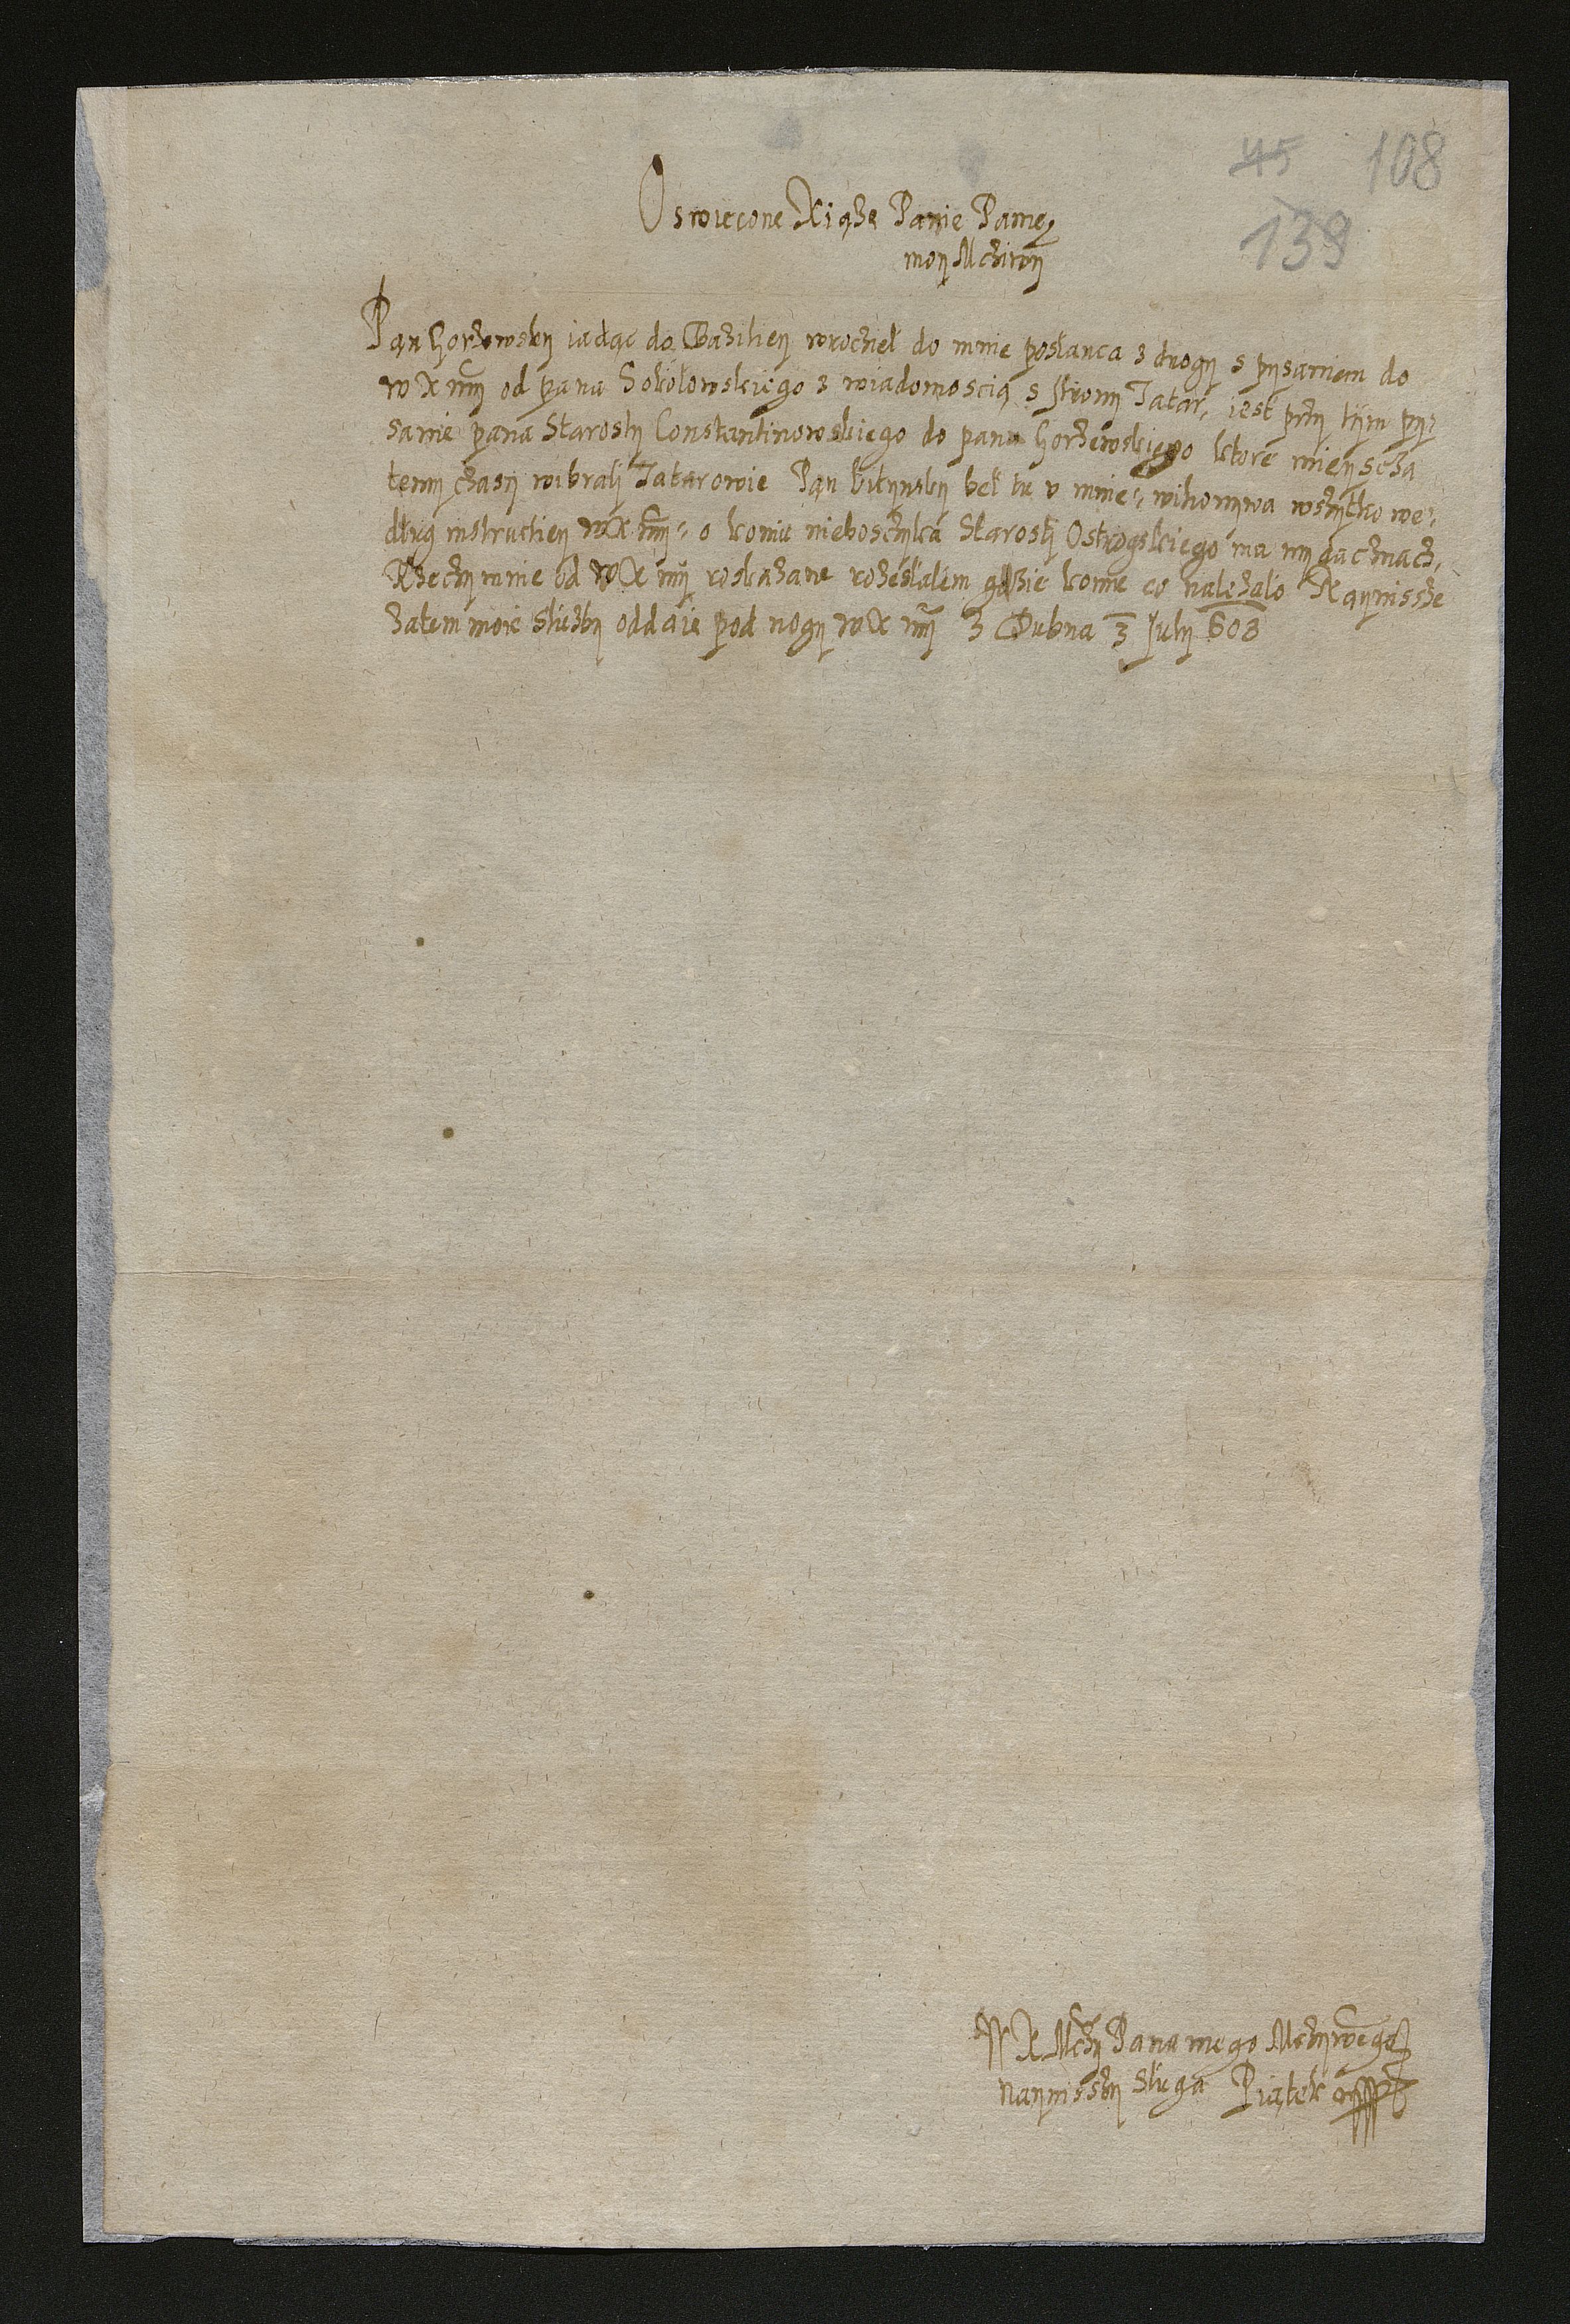 45 108
139
Oswiecone Xiąże Panie Panie
moy Mcziwy
Pan Gorzewsky iadąc do Baziliey wrocziel do mnie posłanca z drogy s pysaniem do
w X my od pana Sokołowskiego z wiadomoscią s strony Tatar, iest przy tym py-
sanie pana Starosty Constantinowskiego do pana Gorzewskiego ktore mieyscza
temy czasy wibraly Tatarowie Pan kitynsky beł tu v mnie, wikonywa wszytko we-
dług instructiey wX my, o koniu nieboszczyka Starosty Ostrogskiego ma
Rzeczy mnie od wX my roskazane rozesłalem gdzie komu co nalezało Naynissze
zatem moie służby oddaie pod nogy wX my z Dubna 3 July 603
W X Mczy Pana mego Mcziwego
naynisszy sługa Piątek